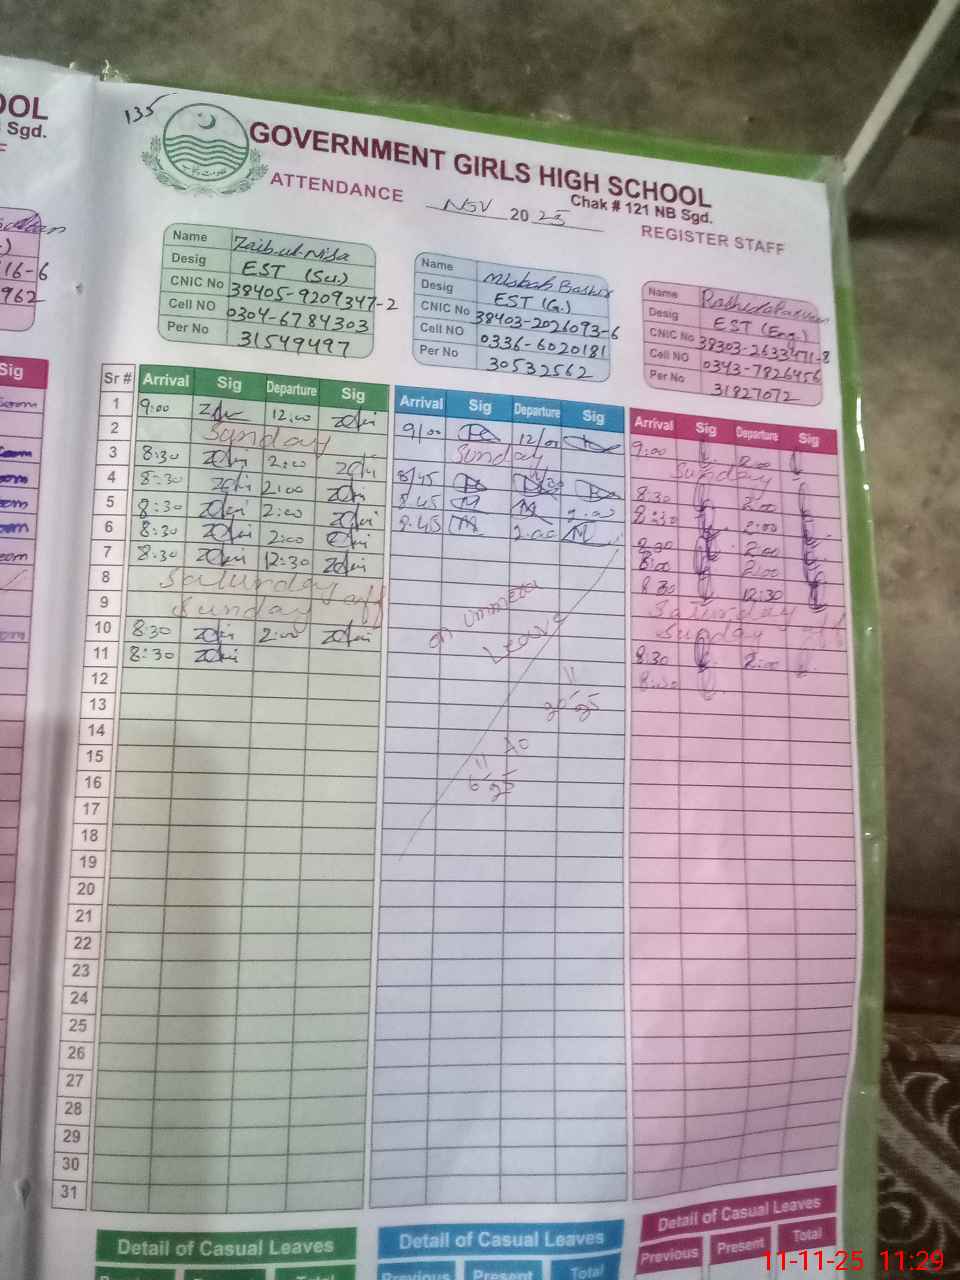 OOL
Sgd.
16-6
962
Sig
135
GOVERNMENT GIRLS HIGH SCHOOL
Chak # 121 NB Sgd.
ATTENDANCE Nov 2025 REGISTER STAFF
Name Zaib-ul-Nisa
Desig EST (Sci)
CNIC No 38405-9209347-2
Cell NO 0304-6784303
Per No 31549497
Name Misbah Bashir
Desig EST (G.)
CNIC No 38403-2026093-6
Cell NO 0336-6020181
Per No 30532562
Name Rashida Parveen
Desig EST (Eng.)
CNIC No 38303-2633471-8
Cell NO 0343-7826456
Per No 31827072
Sr # Arrival Sig Departure Sig Arrival Sig Departure Sig Arrival Sig Departure Sig
1 9:00 12:00 9/00 12/00 9:00
2 Sunday Sunday Sunday
3 8:30 2:00 8/45 8:30 2:00
4 8:30 2:00 8.45 2.00 8:30 2:00
5 8:30 2:00 8.45 2.00 2:00
6 8:30 2:00 8:00 2:00
7 8:30 12:30 8:30 12:30
8 Saturday off Saturday off
9 Sunday Sunday
10 8:30 2:00 8:30 2:00
11 8:30 8:30
on
Leave
11
25
11
25
12
13
14
15
16
17
18
19
20
21
22
23
24
25
26
27
28
29
30
31
Detail of Casual Leaves Detail of Casual Leaves Detail of Casual Leaves
Previous Present Total Previous Present Total Previous Present Total
11-11-25 11:29